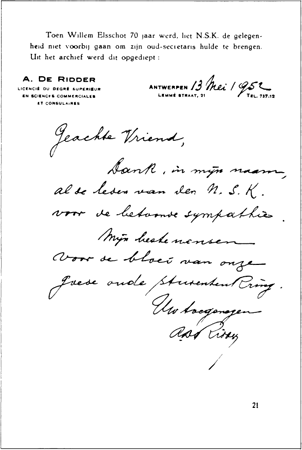 Toen Willem Elsschot 70 jaar werd, liet N.S.K. de gelegen-
heid niet voorbij gaan om zijn oud-secretaris hulde te brengen.
Uit het archief werd dit opgediept:
A. DE RIDDER
LICENCIÉ DU DEGRÉ SUPÉRIEUR
EN SCIENCES COMMERCIALES
ET CONSULAIRES
ANTWERPEN 13 Mei 1952
LEMMÉ STRAAT, 21 TEL. 757.12
Geachte Vriend,
Dank, in mijn naam,
al de leden van den N.S.K.
voor de betoonde sympathie.
Mijn beste wensen
voor de bloei van onze
goede oude studentenkring.
Uw toegenegen
A De Ridder
21